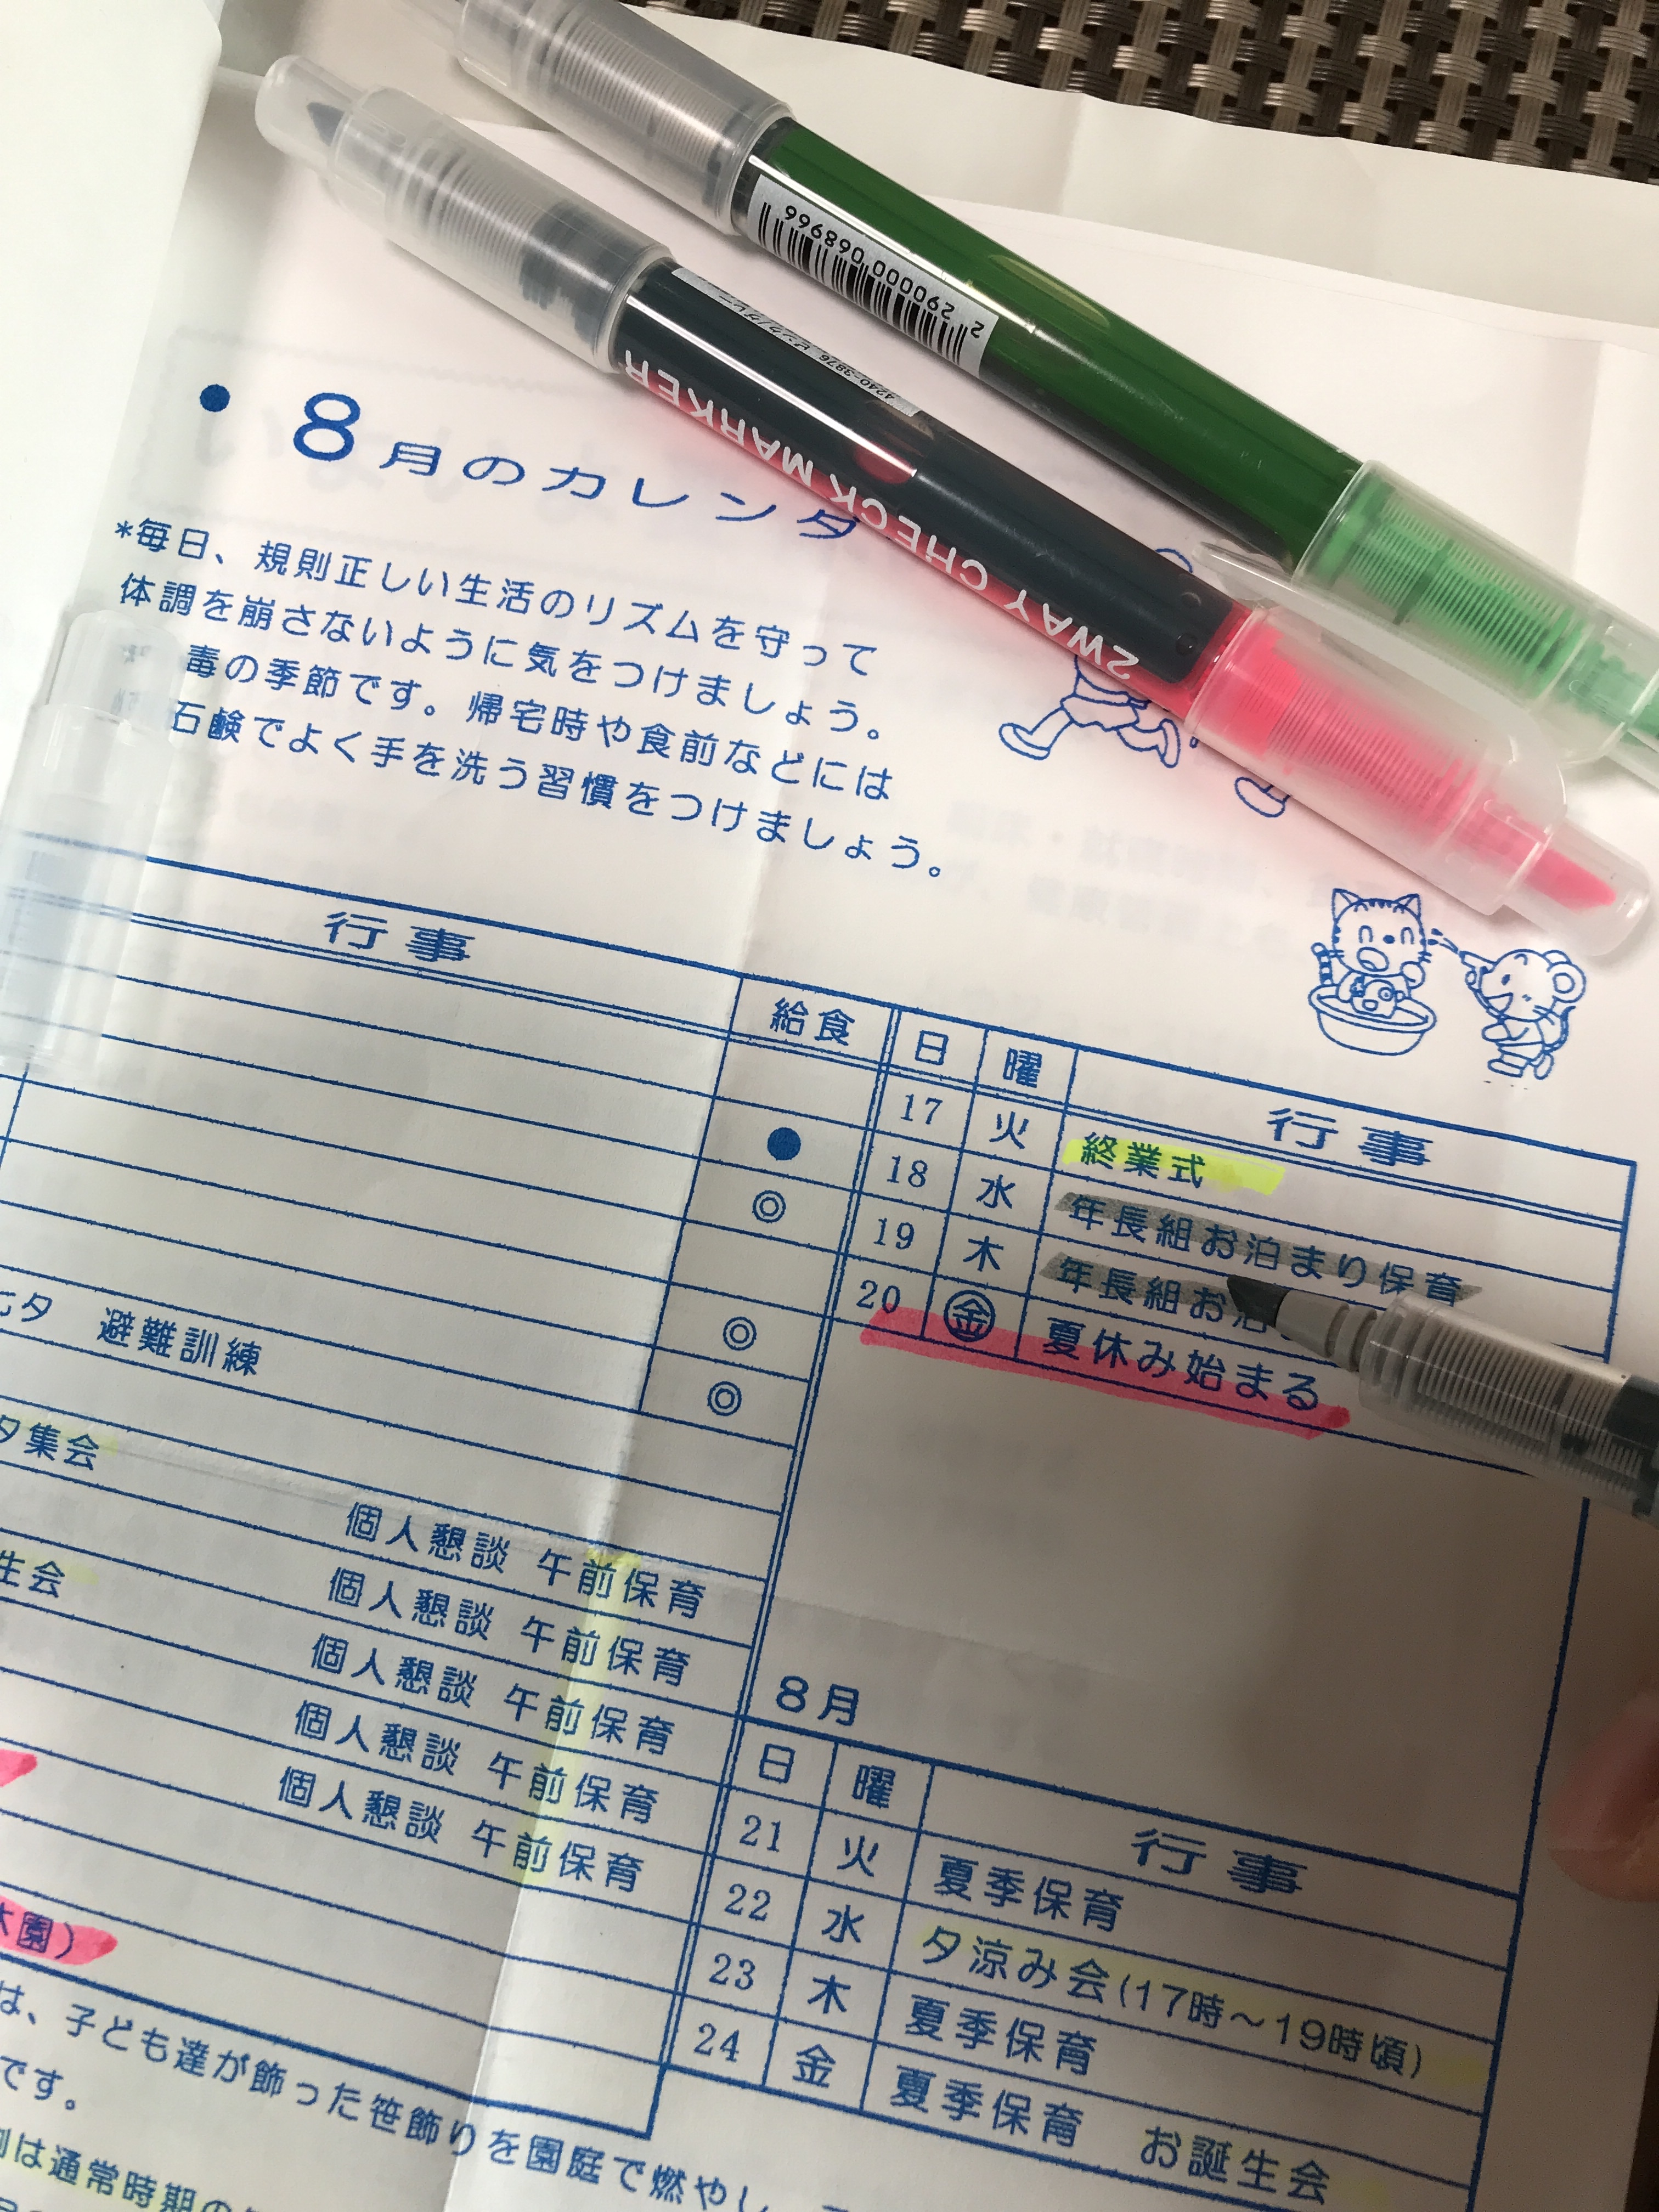 2 290000 068966
4240-3876 ピンク/グレー
2WAY CHECK MARKER
• 8月のカレンダ
*毎日、規則正しい生活のリズムを守って
体調を崩さないように気をつけましょう。
毒の季節です。帰宅時や食前などには
石鹸でよく手を洗う習慣をつけましょう。
行事 給食
● 
◎
◎
夕 避難訓練 ◎
夕集会
個人懇談 午前保育
生会 個人懇談 午前保育
個人懇談 午前保育
個人懇談 午前保育
個人懇談 午前保育
園)
日 曜 行事
17 火 終業式
18 水 年長組お泊まり保育
19 木 年長組お泊
20 ㊎ 夏休み始まる
8月
日 曜 行事
21 火 夏季保育
22 水 夕涼み会(17時～19時頃)
23 木 夏季保育
24 金 夏季保育 お誕生会
は、子ども達が飾った笹飾りを園庭で燃やし
です。
は通常時期の